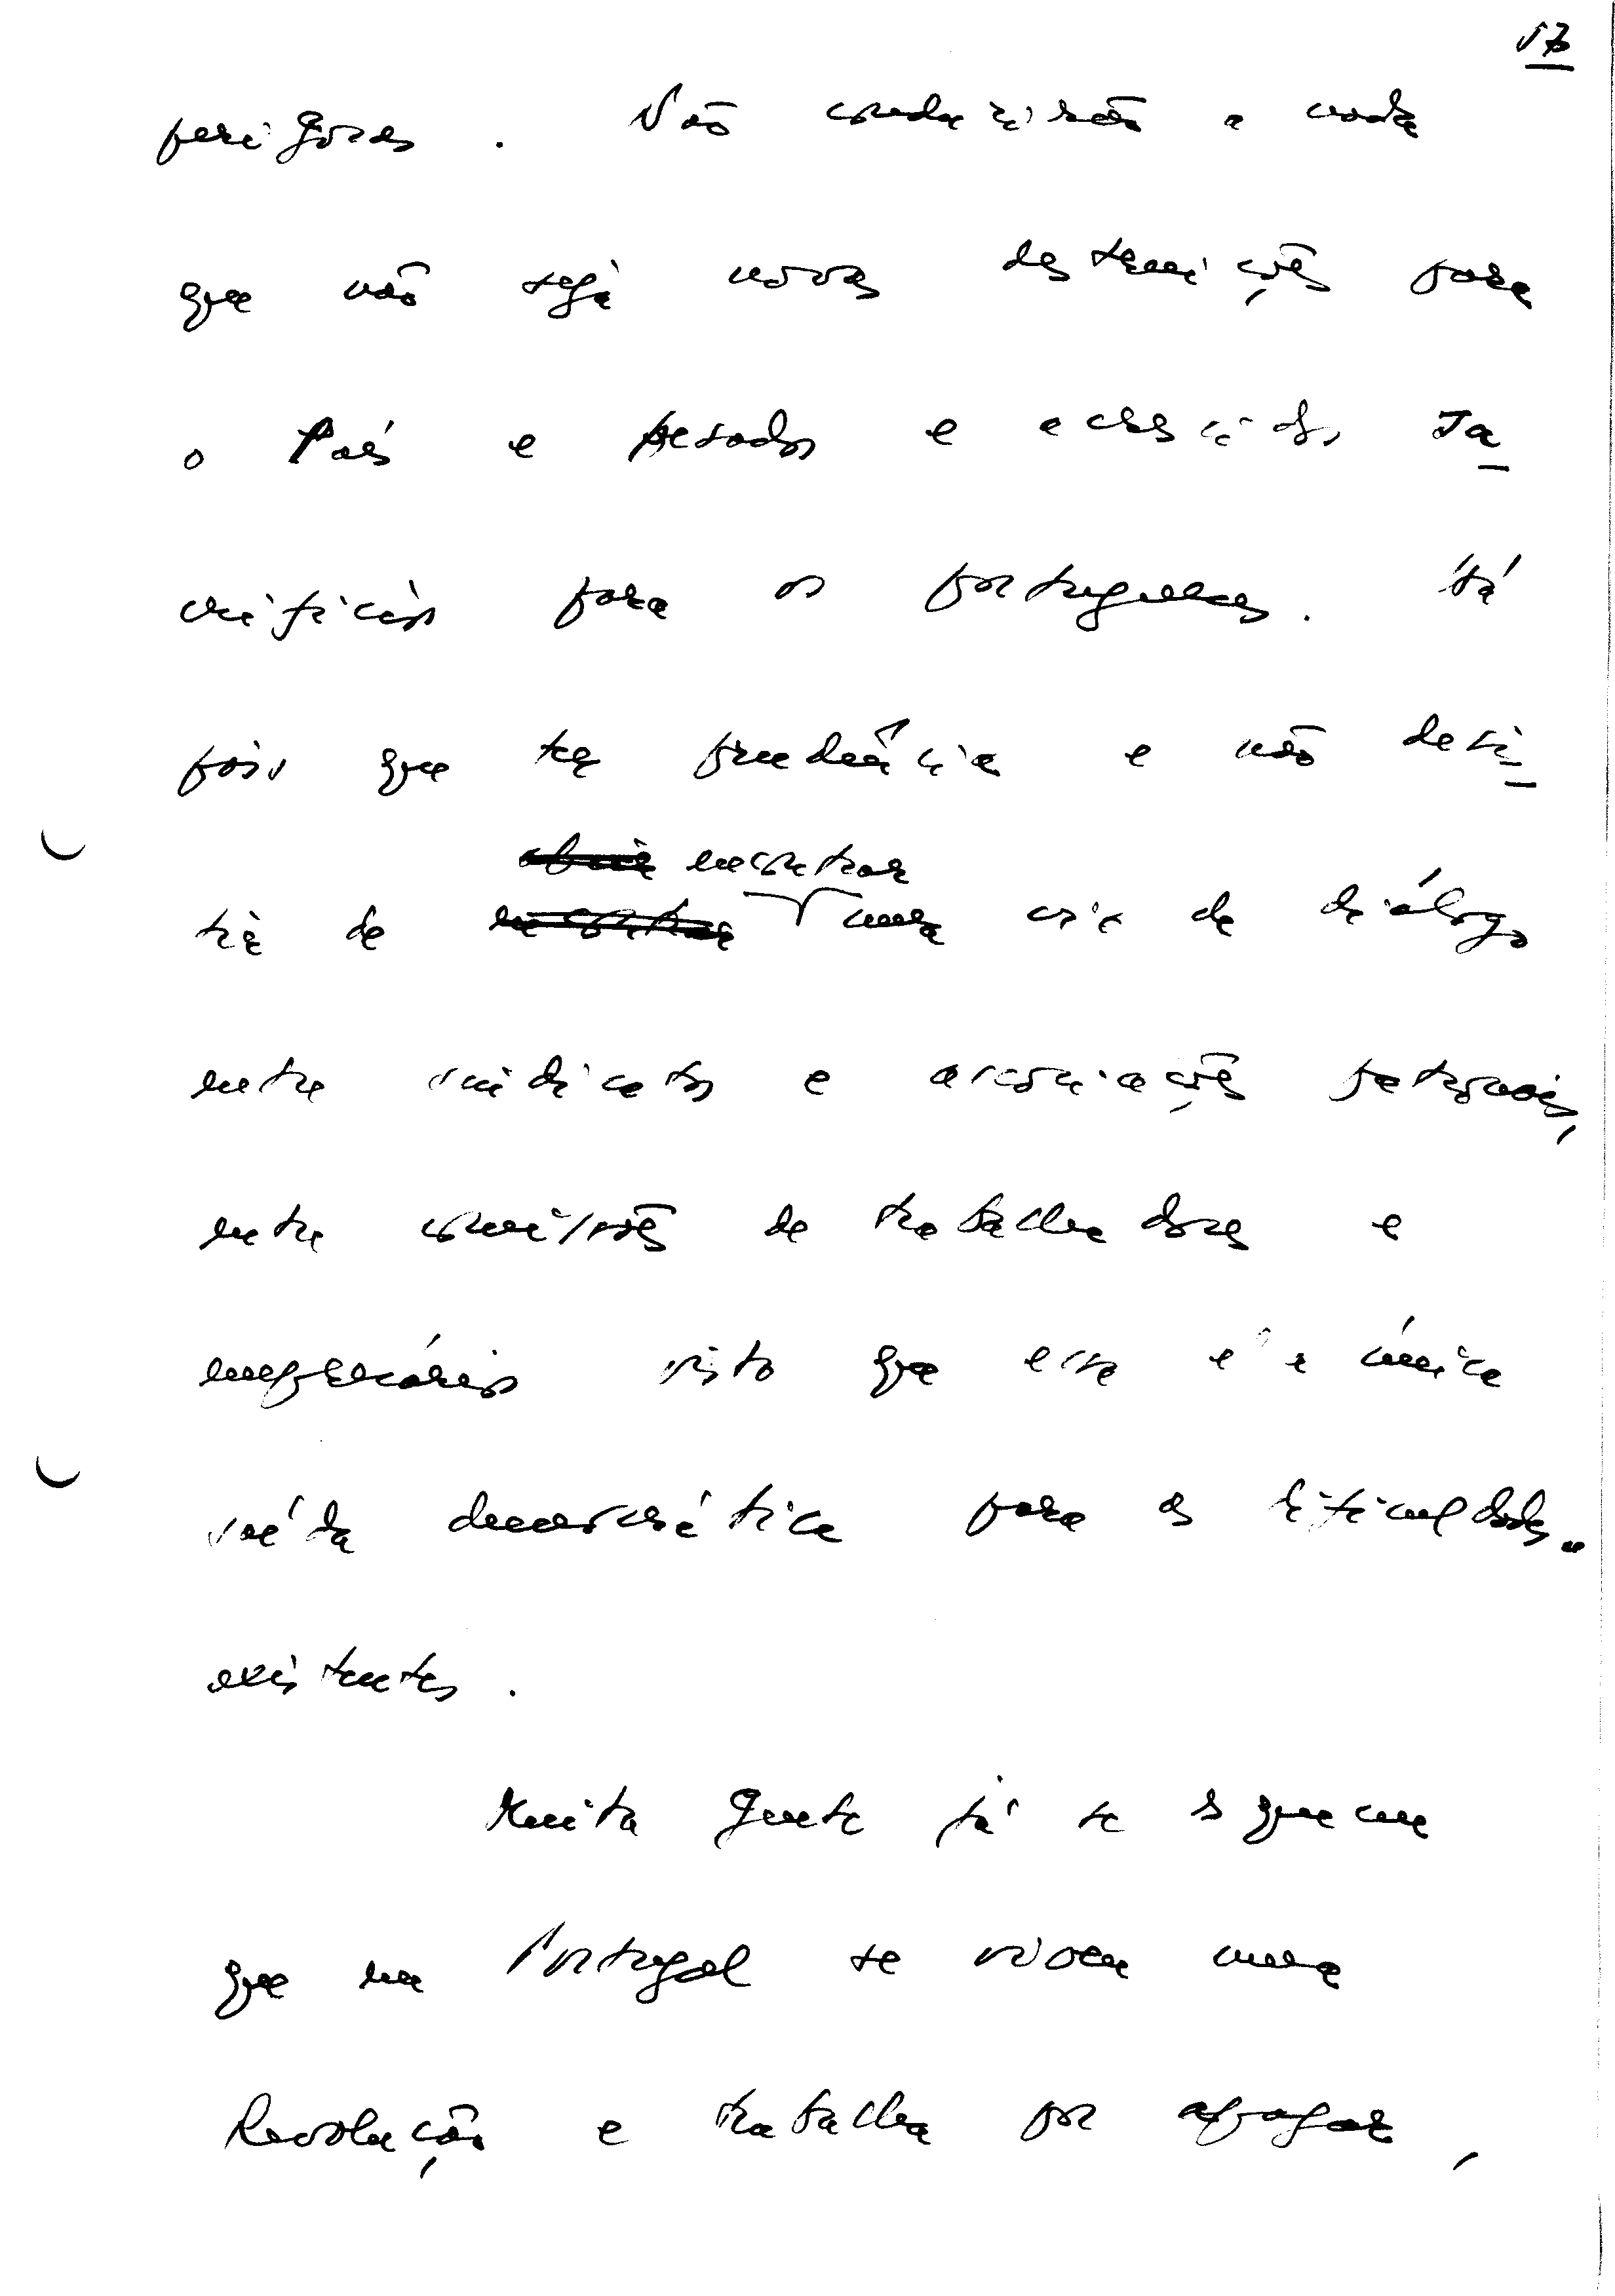 17
perigosas. Não conduzirão a nada
que não seja novas destruições para
o País e pesados e acrescidos sa-
crifícios para os portugueses. Há
pois que ter prudência e não desis-
tir de encontrar uma via de diálogo
entre sindicatos e associações patronais,
entre comissões de trabalhadores e
empresários visto que essa é a única
saída democrática para as dificuldades
existentes.
Muita gente já se esqueceu
que em Portugal se viveu uma
Revolução e trabalha por apagar,